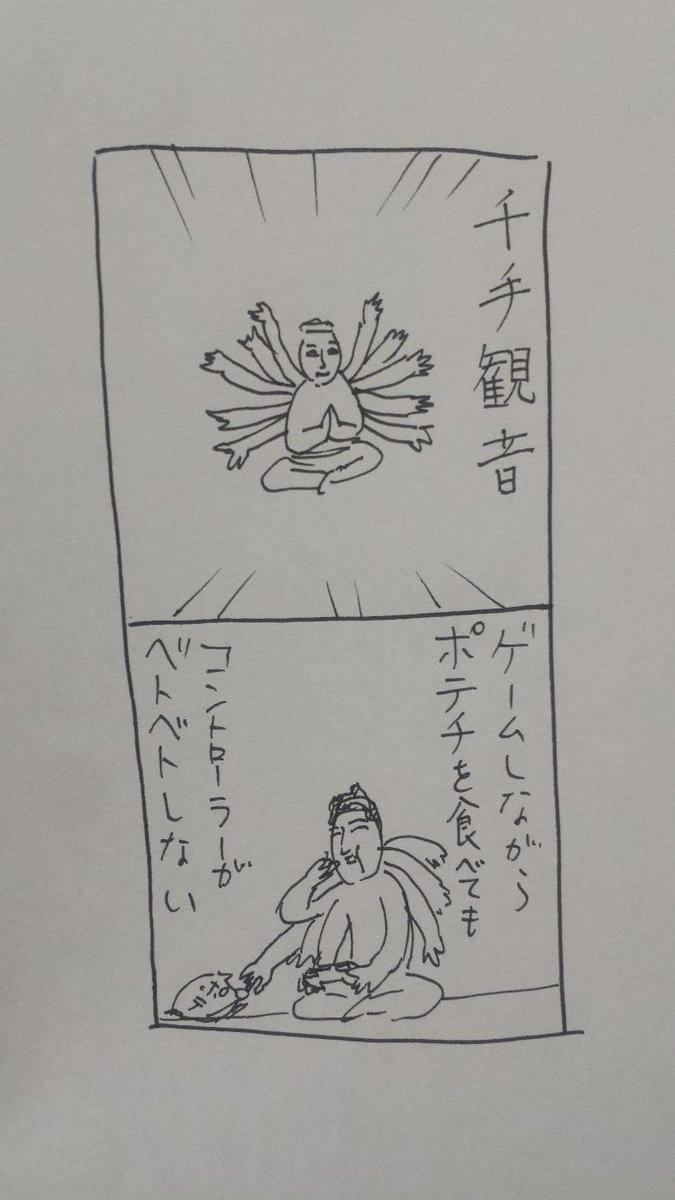 千手観音
ゲームしながら
ポテチを食べても
コントローラーが
ベトベトしない